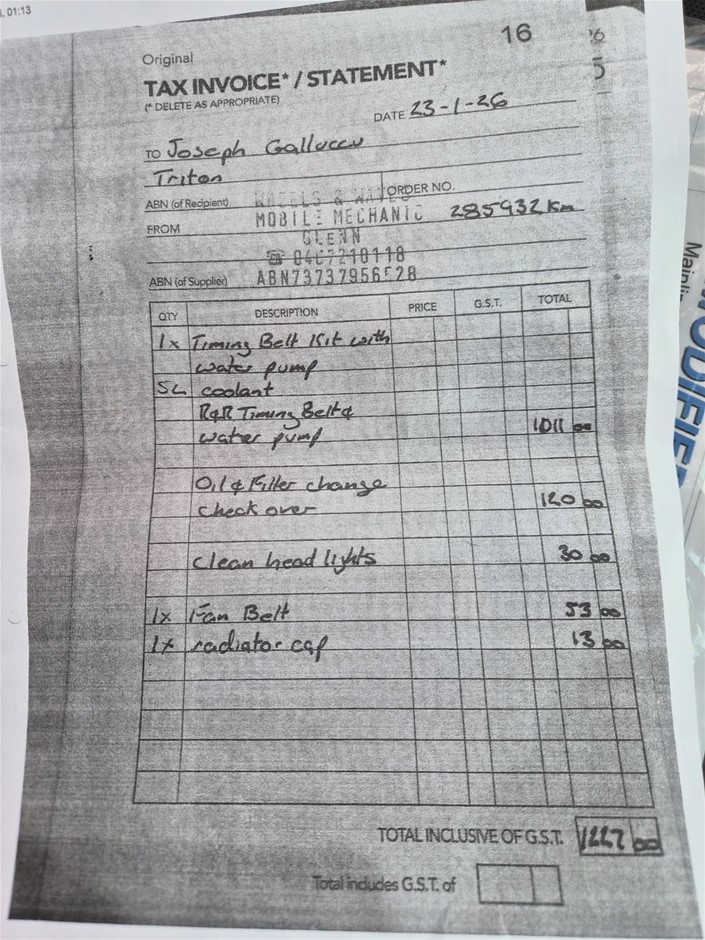 01:13
16
Original
TAX INVOICE* / STATEMENT*
(* DELETE AS APPROPRIATE)
DATE 23-1-26
TO Joseph Galluccu
Triton
ABN (of Recipient) WHEELS & ORDER NO.
FROM MOBILE MECHANIC 285932 Km
GLENN
☎ 0407210118
ABN (of Supplier) ABN73737956528
QTY DESCRIPTION PRICE G.S.T. TOTAL
1x Timing Belt Kit with
water pump
5L coolant
R&R Timing Belt &
water pump 1011 00
Oil & Filter change
check over 120 00
clean head lights 30 00
1x Fan Belt 53 00
1x radiator cap 13 00
TOTAL INCLUSIVE OF G.S.T. 1227 00
Total includes G.S.T. of
MODIFIE